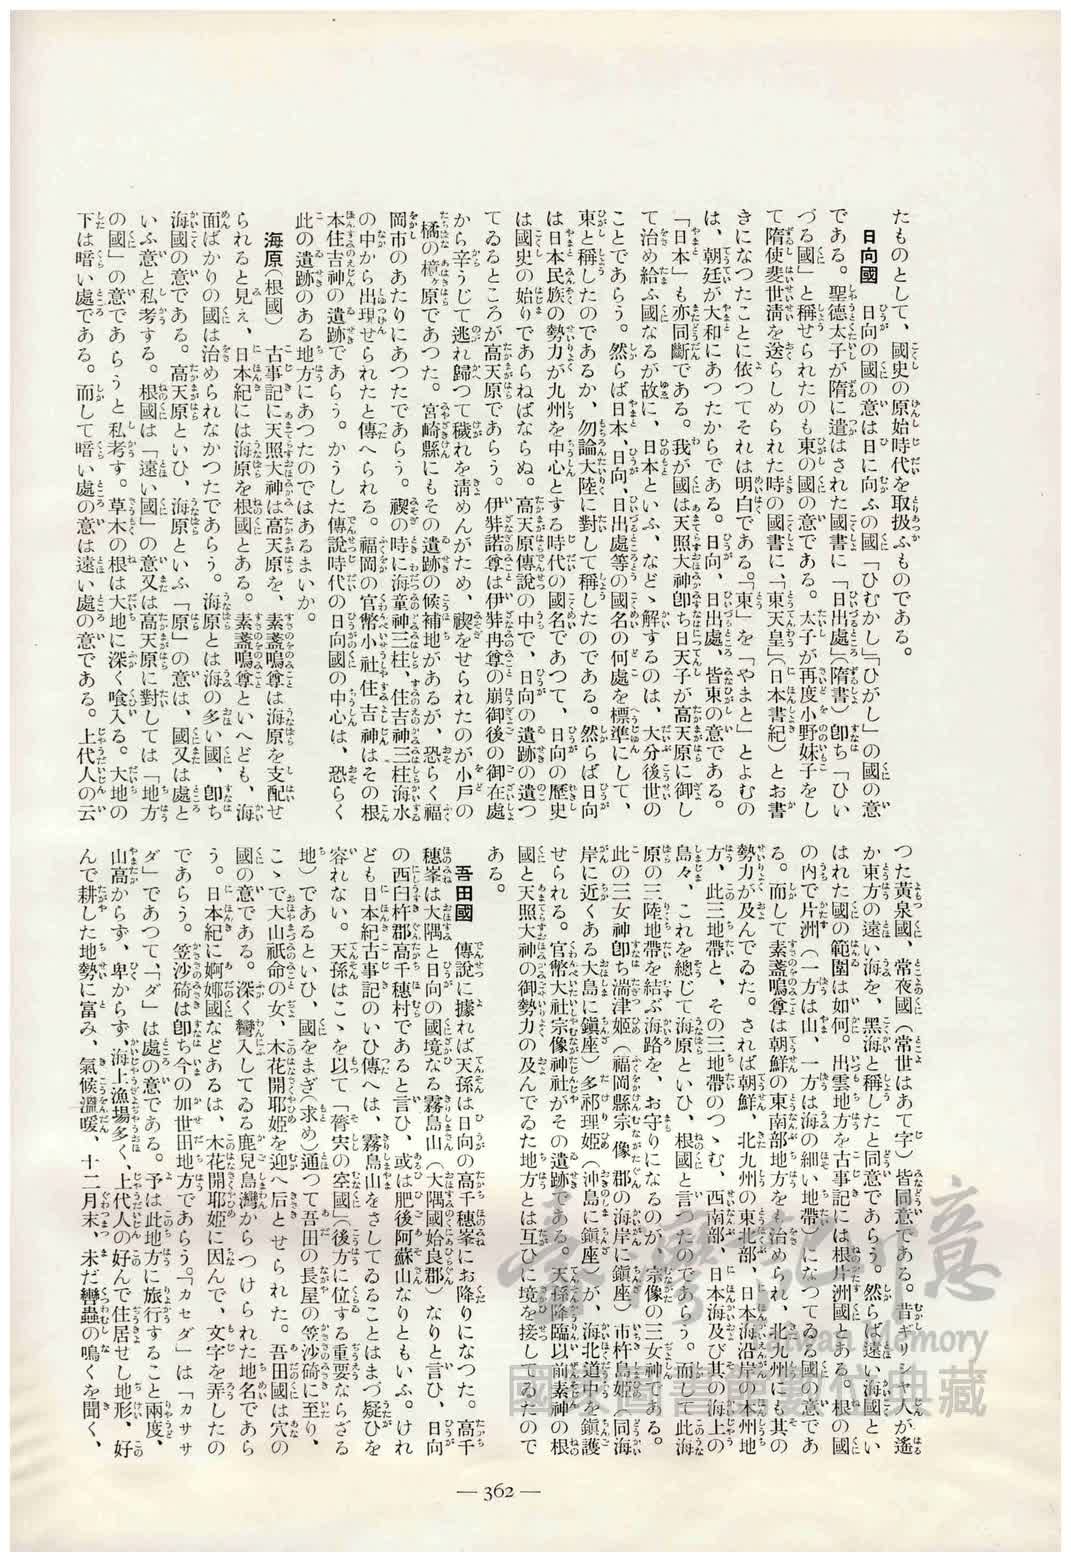 たものとして、國史の原始時代を取扱ふものである。
日向國　日向の國の意は日に向ふの國「ひむかし」「ひがし」の國の意
である。聖德太子が隋に遣はされた國書に「日出處」(隋書)卽ち「ひい
づる國」と稱せられたのも東の國の意である。太子が再度小野妹子をし
て隋使斐世淸を送らしめられた時の國書に、「東天皇」(日本書紀)とお書
きになつたことに依つてそれは明白である。「東」を「やまと」とよむの
は、朝廷が大和にあつたからである。日向、日出處、皆東の意である。
「日本」も亦同斷である。我が國は天照大神卽ち日天子が高天原に御し
て治め給ふ國なるが故に、日本といふ、などゝ解するのは、大分後世の
ことであらう。然らば日本、日向、日出處等の國名の何處を標準にして、
東と稱したのであるか、勿論大陸に對して稱したのである。然らば日向
は日本民族の勢力が九州を中心とする時代の國名であつて、日向の歷史
は國史の始りであらねばならぬ。高天原傳說の中で、日向の遺跡の遺つ
てゐるところが高天原であらう。伊弉諾尊は伊弉冉尊の崩御後の御在處
から辛うじて逃れ歸つて穢れを淸めんがため、禊をせられたのが小戸の
橘の檍ヶ原であつた。宮崎縣にもその遺跡の候補地があるが、恐らく福
岡市のあたりにあつたであらう。禊の時に海童神三柱、住吉神三柱海水
の中から出現せられたと傳へられる。福岡の官幣小社住吉神はその根
本住吉神の遺跡であらう。かうした傳說時代の日向國の中心は、恐らく
此の遺跡のある地方にあつたのではあるまいか。
海原(根國)　古事記に天照大神は高天原を、素盞鳴尊は海原を支配せ
られると見え、日本紀には海原を根國とある。素盞鳴尊といへども、海
面ばかりの國は治められなかつたであらう。海原とは海の多い國、卽ち
海國の意である。高天原といひ、海原といふ「原」の意は、國又は處と
いふ意と私考する。根國は「遠い國」の意又は高天原に對しては「地方
の國」の意であらうと私考す。草木の根は大地に深く喰入る。大地の
下は暗い處である。而して暗い處の意は遠い處の意である。上代人の云
つた黃泉國、常夜國(常世はあて字)皆同意である。昔ギリシヤ人が遙
か東方の遠い海を、黑海と稱したと同意であらう。然らば遠い海國とい
はれた國の範圍は如何。出雲地方を古事記には根片洲國とある。根の國
の內で片洲(一方は山、一方は海の細い地帶)になつてゐる國の意であ
る。而して素盞鳴尊は朝鮮の東南部地方をも治められ、北九州にも其の
勢力が及んでゐた。されば朝鮮、北九州の東北部、日本海沿岸の本州地
方、此三地帶と、その三地帶のつゝむ、西南部、日本海及び其の海上の
島々、これを總じて海原といひ、根國と言つたのであらう。而して此海
原の三陸地帶を結ぶ海路を、お守りになるのが、宗像の三女神である。
此の三女神卽ち湍津姬(福岡縣宗像郡の海岸に鎭座)市杵島姬(同海
岸に近くある大島に鎭座)多祁理姬(沖島に鎭座)が、海北道中を鎭護
せられる。官幣大社宗像神社がその遺跡である。天孫降臨以前素神の根
國と天照大神の御勢力の及んでゐた地方とは互ひに境を接してゐたので
ある。
吾田國　傳說に據れば天孫は日向の高千穗峯にお降りになつた。高千
穗峯は大隅と日向の國境なる霧島山(大隅國始良郡)なりと言ひ、日向
の西臼杵郡高千穗村であると言ひ、或は肥後阿蘇山なりともいふ。けれ
ども日本紀古事記のいひ傳へは、霧島山をさしてゐることはまづ疑ひを
容れない。天孫はこゝを以て「膂宍の空國(後方に位する重要ならざる
地)であるといひ、國をまぎ(求め)通つて吾田の長屋の笠沙碕に至り、
こゝで大山祇命の女、木花開耶姬を迎へ后とせられた。吾田國は穴の
國の意である。深く彎入してゐる鹿兒島灣からつけられた地名であら
う。日本紀に婀娜國などあるは、木花開耶姬に因んで、文字を弄したの
であらう。笠沙碕は卽ち今の加世田地方であらう。「カセダ」は「カササ
ダ」であつて、「ダ」は處の意である。予は此地方に旅行すること兩度、
山高からず、卑からず、海上漁場多く、上代人の好んで住居せし地形、好
んで耕した地勢に富み、氣候溫暖、十二月末、未だ轡蟲の鳴くを聞く、
— 362 —
臺灣記憶
Taiwan Memory
國家圖書館數位典藏